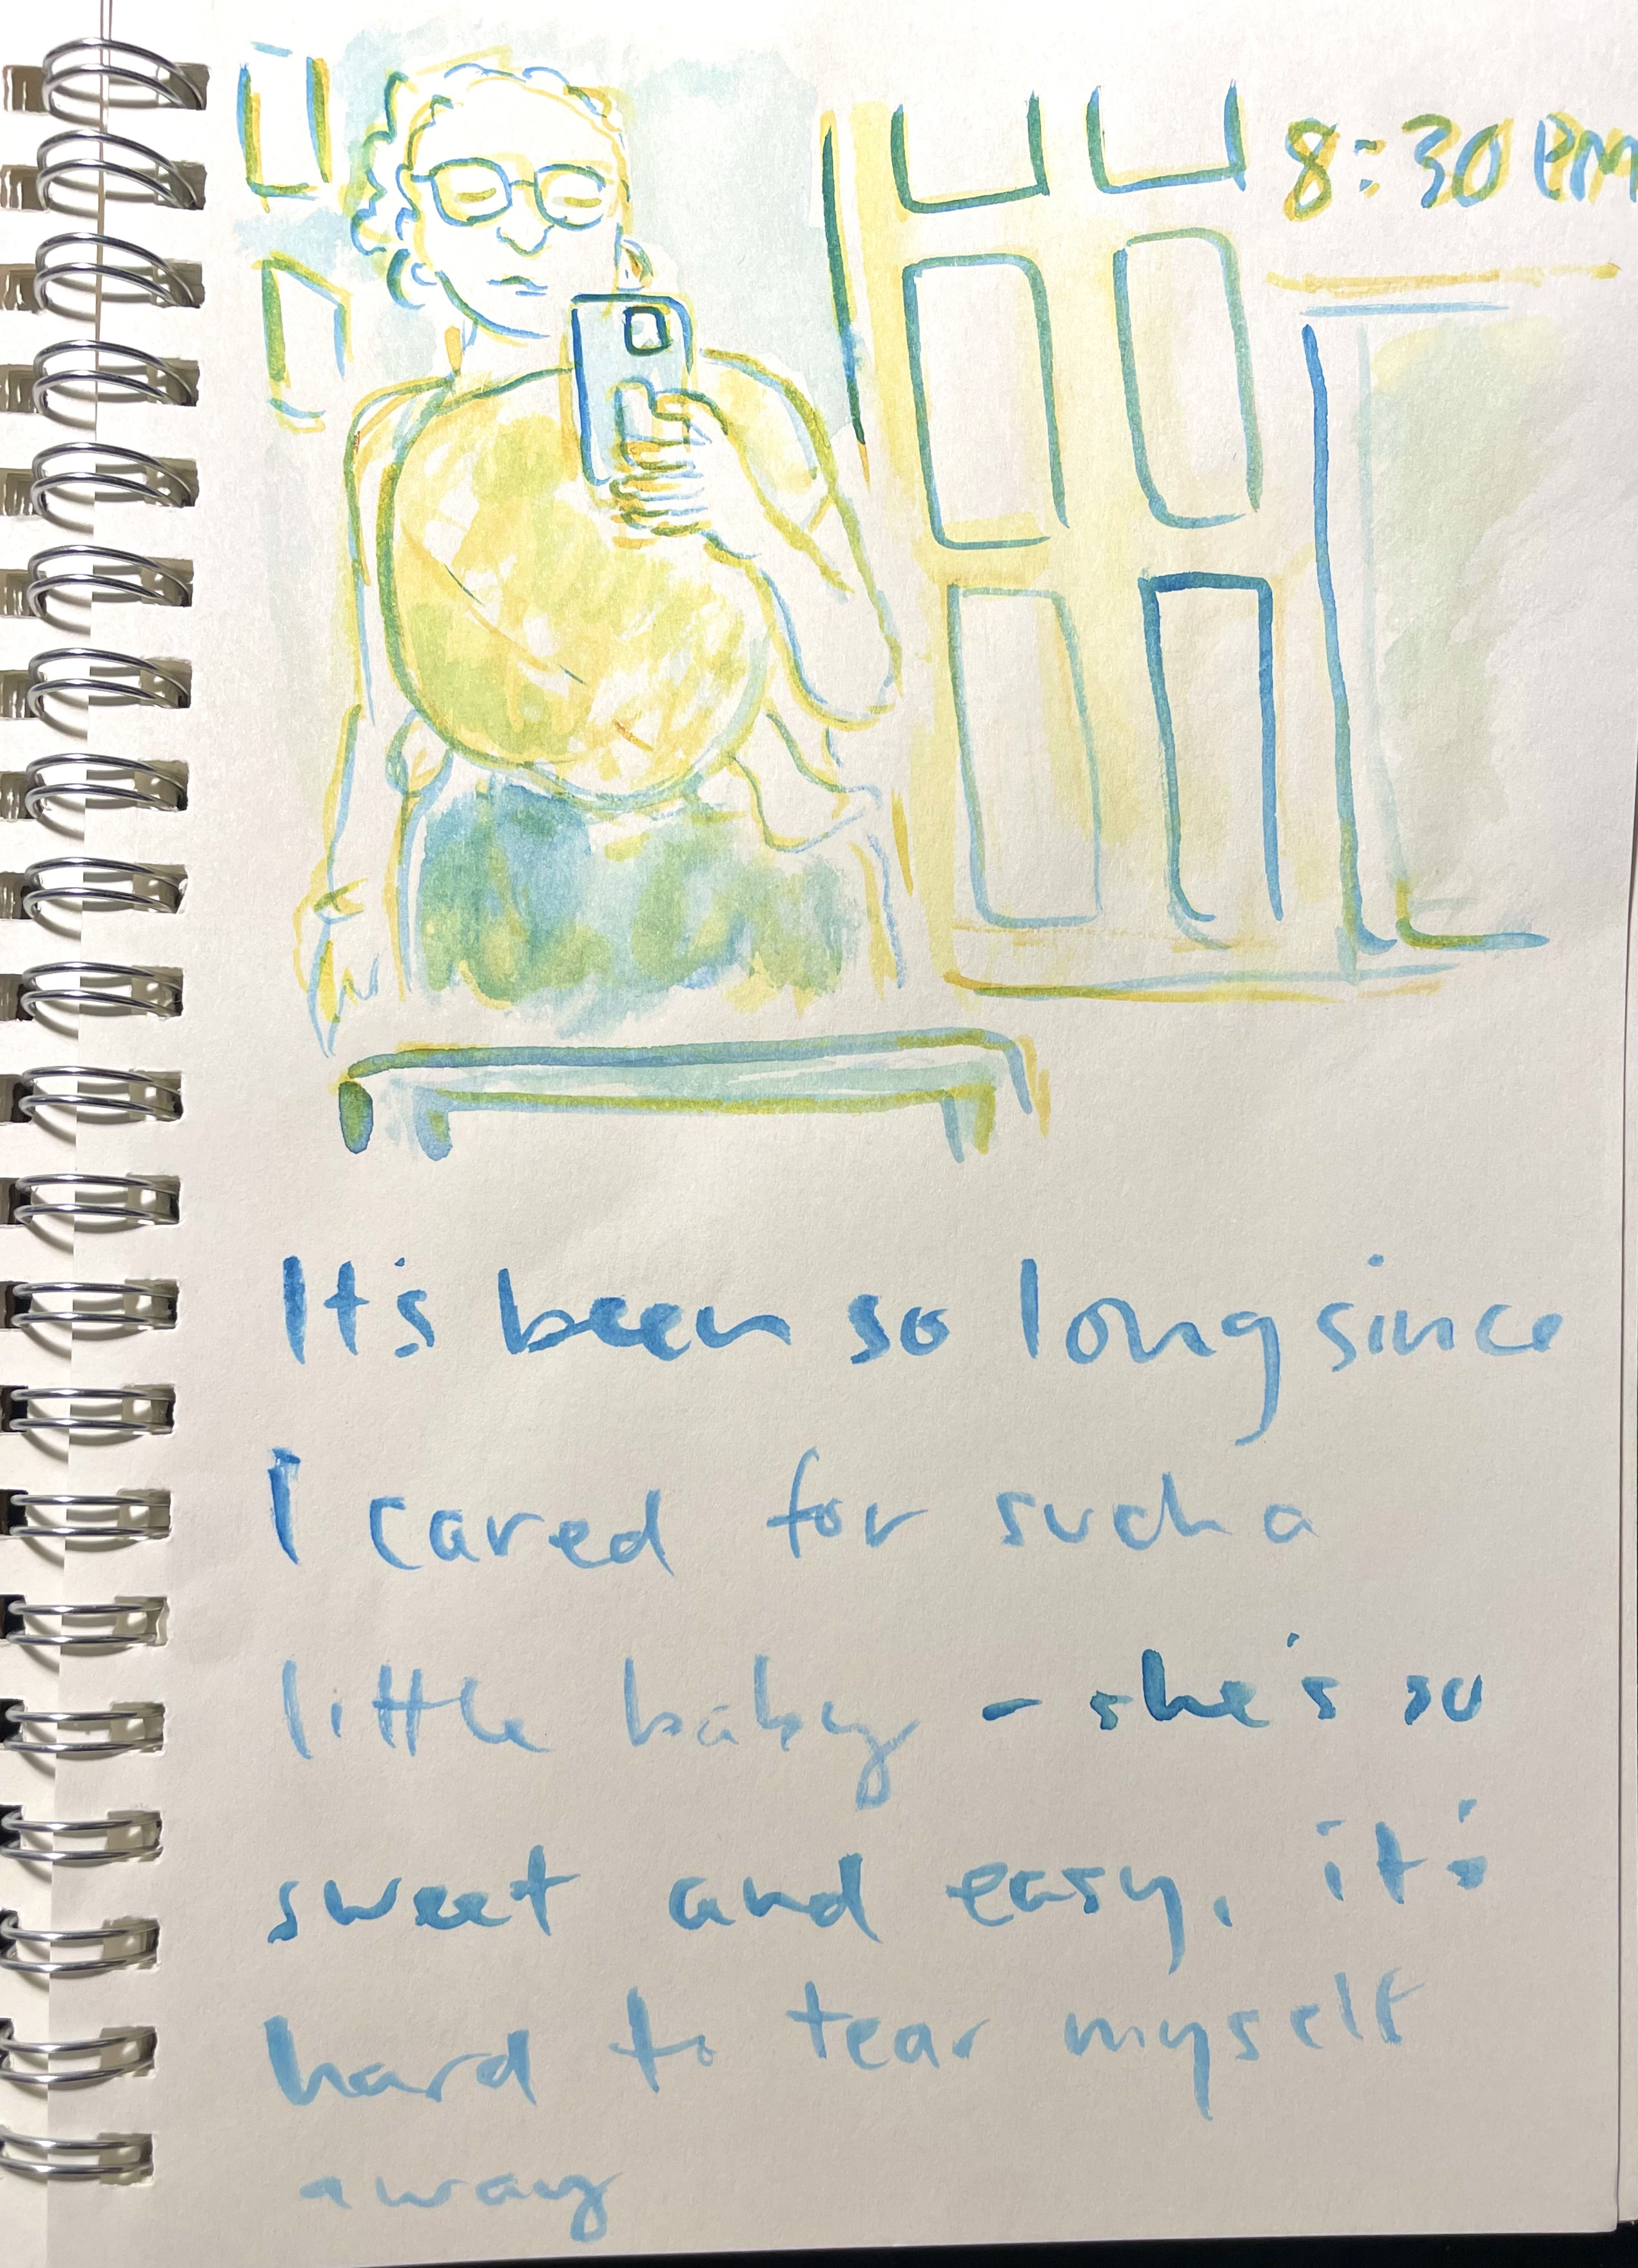 8:30 PM
It's been so long since
I cared for such a
little baby - she's so
sweet and easy. it's
hard to tear myself
away